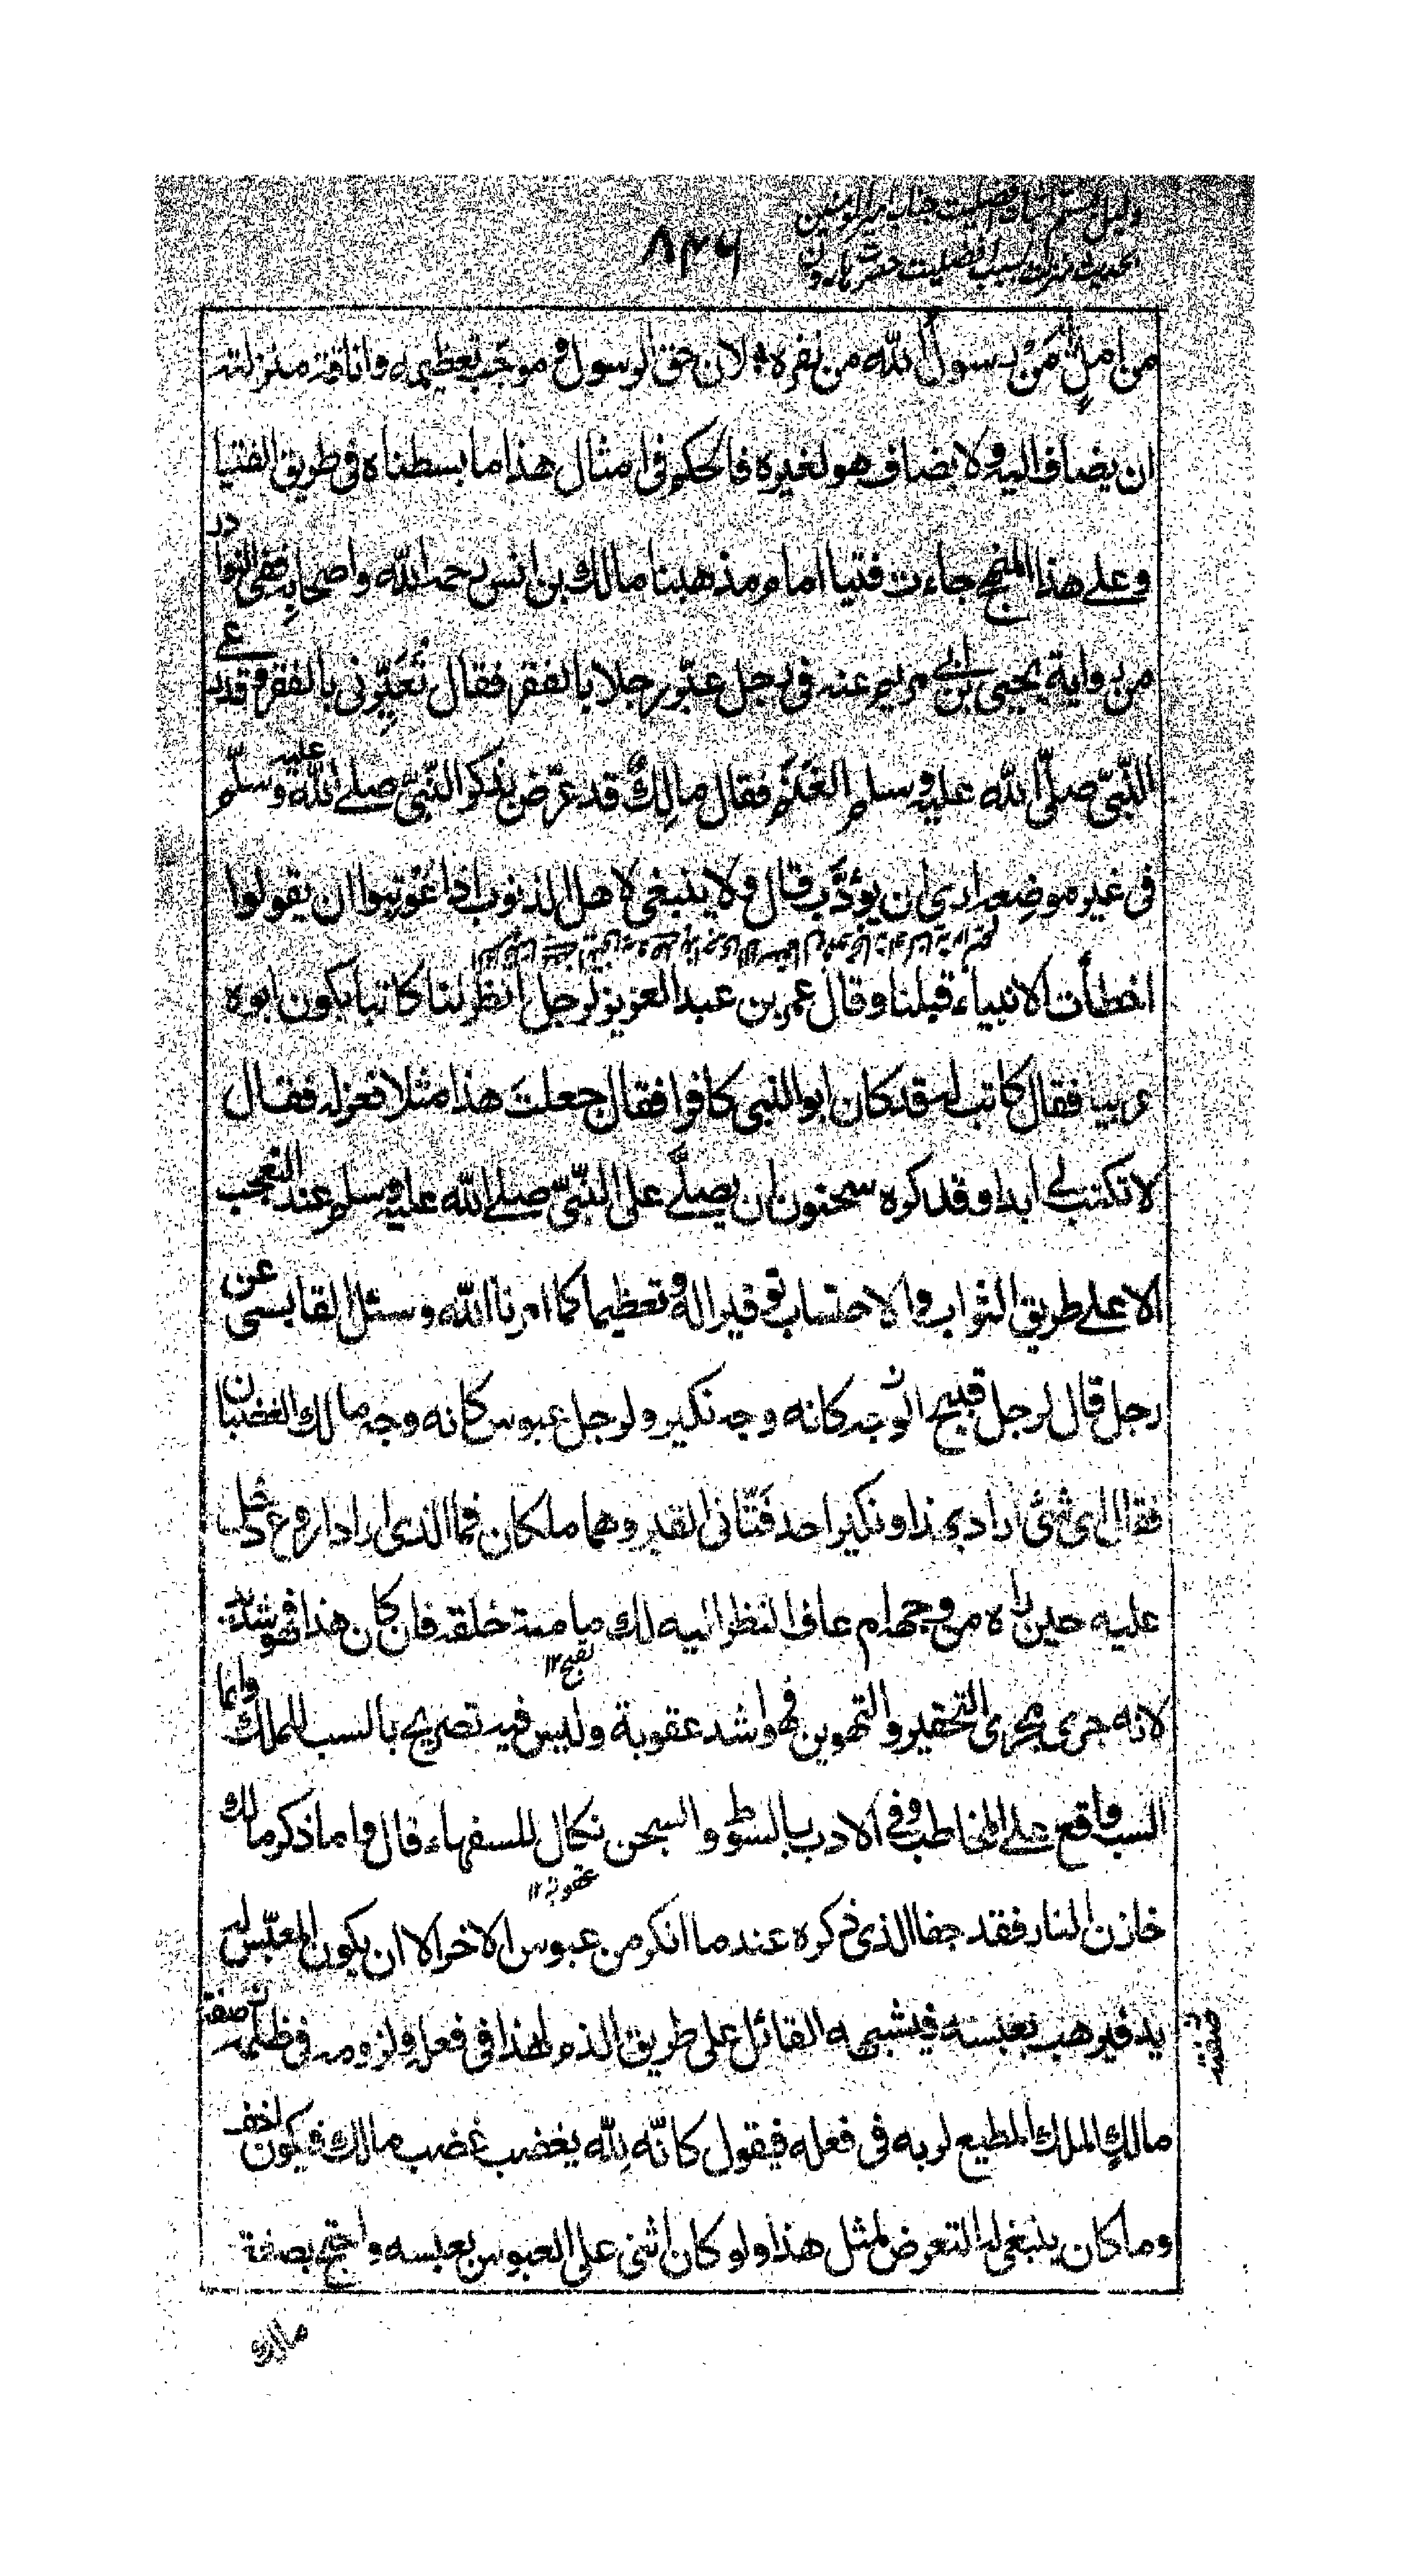 ۸۲۶
من امل من رسول الله من نفره لان حق الرسول في موجب تعظيمه وانافة منزلته
ان يضاف اليه ولا يضاف هو لغيره فالحكم في امثال هذا ما بسطناه في طريق الفتيا
وعلے هذا المنهج جاءت فتيا امام مذهبنا مالك بن انس رحمه الله واصحابه ففي النوادر
من رواية يحيى بن ابي مريم عنه في رجل عيّر رجلا بالفقر فقال تُعَيِّرُني بالفقر وقد رعے
النّبيّ صلّى الله عليه وسلم الغَنَم فقال مالِكٌ قد عرّض بذكر النّبيّ صلے الله عليه وسلّم
في غير موضِعه ارى ان يؤدَّب قال ولا ينبغي لاهل الذنوب اذا عُوتِبوا ان يقولوا
اخطأت الانبياء قبلنا وقال عمر بن عبد العزيز لرجل انظر لنا كاتبا يكون ابوه
عربيا فقال كاتب له قد كان ابو النبي كافرا فقال جعلت هذا مثلا فعزله فقال
لا تكتب لے ابدا وقد كره سحنون ان يصلّے على النّبيّ صلے الله عليه وسلم عند التعجب
الا علے طريق الثواب والاحتساب توقيرا له وتعظيما كما امرنا الله وسئل القابسي عن
رجل قال لرجل قبيح الوجه كانه وجه نكير ولرجل عبوس كانه وجه مالك الغضبان
فقال اي شئ اراد بهذا ونكير احد فَتّاني القبر وهما ملكان فما الذي اراد اروع دخل
عليه حين راه من وجهه ام عاف النظر اليه لدمامة خلقه فان كان هذا فهو شديد
تقبيح ۱۲
لانه جرى مجرى التحقير والتهوين فهو اشد عقوبة وليس فيه تصريح بالسب للملك وانما
السب واقع علے المخاطب وفے الادب بالسوط والسجن نكال للسفهاء قال واما ذكر مالك
عقوبة ۱۲
خازن النار فقد جفا الذي ذكره عند ما انكر من عبوس الاخر الا ان يكون المعبّس له
يد فيرهب بعبسته فيشبهه القائل على طريق الذم لهذا في فعله ولزومه في ظلمه صفة
مالكٍ الملك المطيع لربه في فعله فيقول كانّه لِلّه يغضب غضب مالك فيكون اخف
وما كان ينبغي له التعرض لمثل هذا ولو كان اثنى على العبوس بعبسه واحتج بصفة
مالك